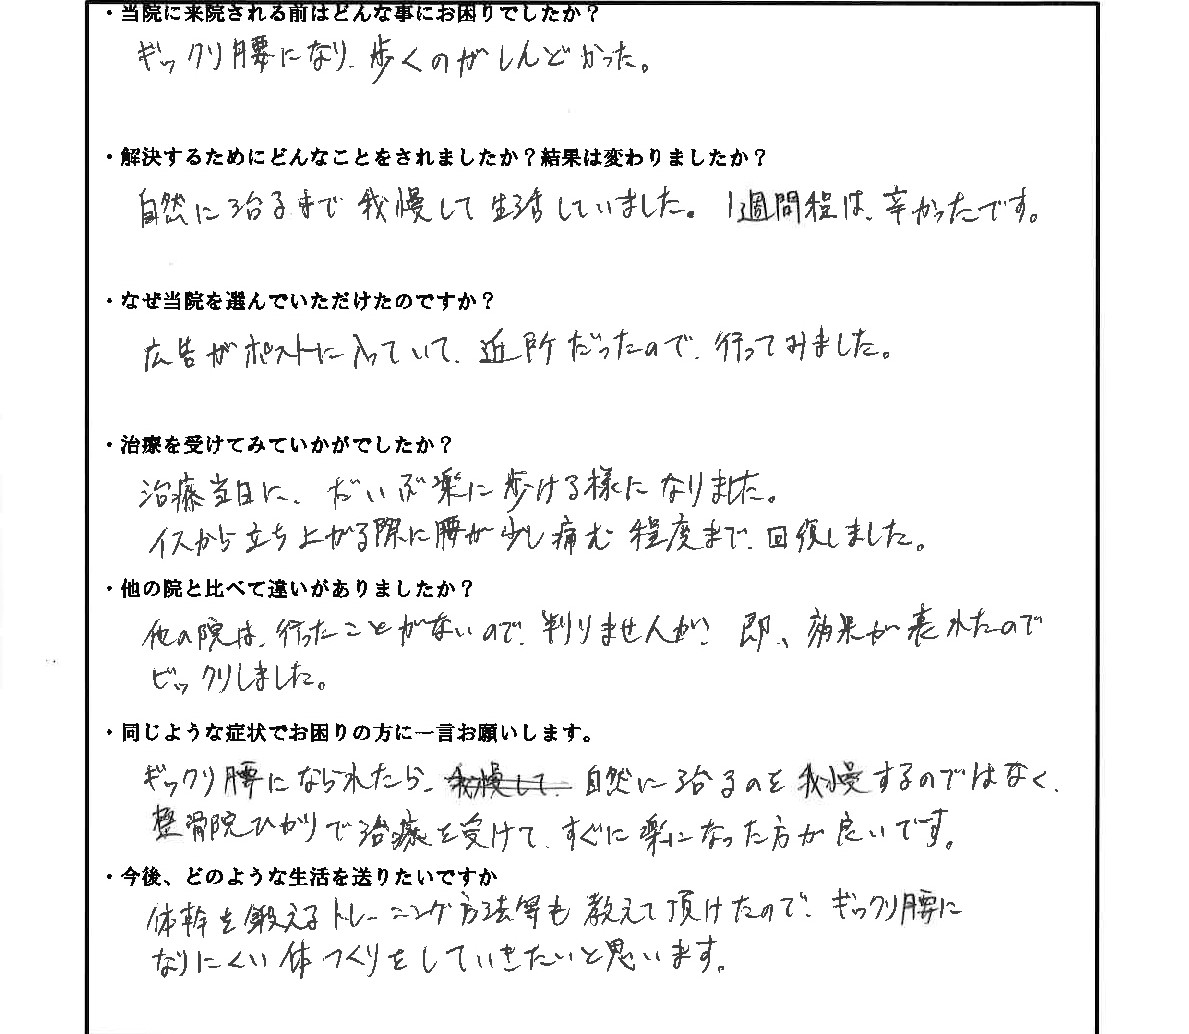 ・当院に来院される前はどんな事にお困りでしたか？
ギックリ腰になり、歩くのがしんどかった。
・解決するためにどんなことをされましたか？結果は変わりましたか？
自然に治るまで我慢して生活していました。1週間程は、辛かったです。
・なぜ当院を選んでいただけたのですか？
広告がポストに入っていて、近所だったので、行ってみました。
・治療を受けてみていかがでしたか？
治療当日に、だいぶ楽に歩ける様になりました。
イスから立ち上がる際に腰が少し痛む程度まで、回復しました。
・他の院と比べて違いがありましたか？
他の院は、行ったことがないので、判りませんが、即、効果が表れたので
ビックリしました。
・同じような症状でお困りの方に一言お願いします。
ギックリ腰になられたら、我慢して、自然に治るのを我慢するのではなく、
整骨院ひかりで治療を受けて、すぐに楽になった方が良いです。
・今後、どのような生活を送りたいですか
体幹を鍛えるトレーニング方法等も教えて頂けたので、ギックリ腰に
なりにくい体つくりをしていきたいと思います。